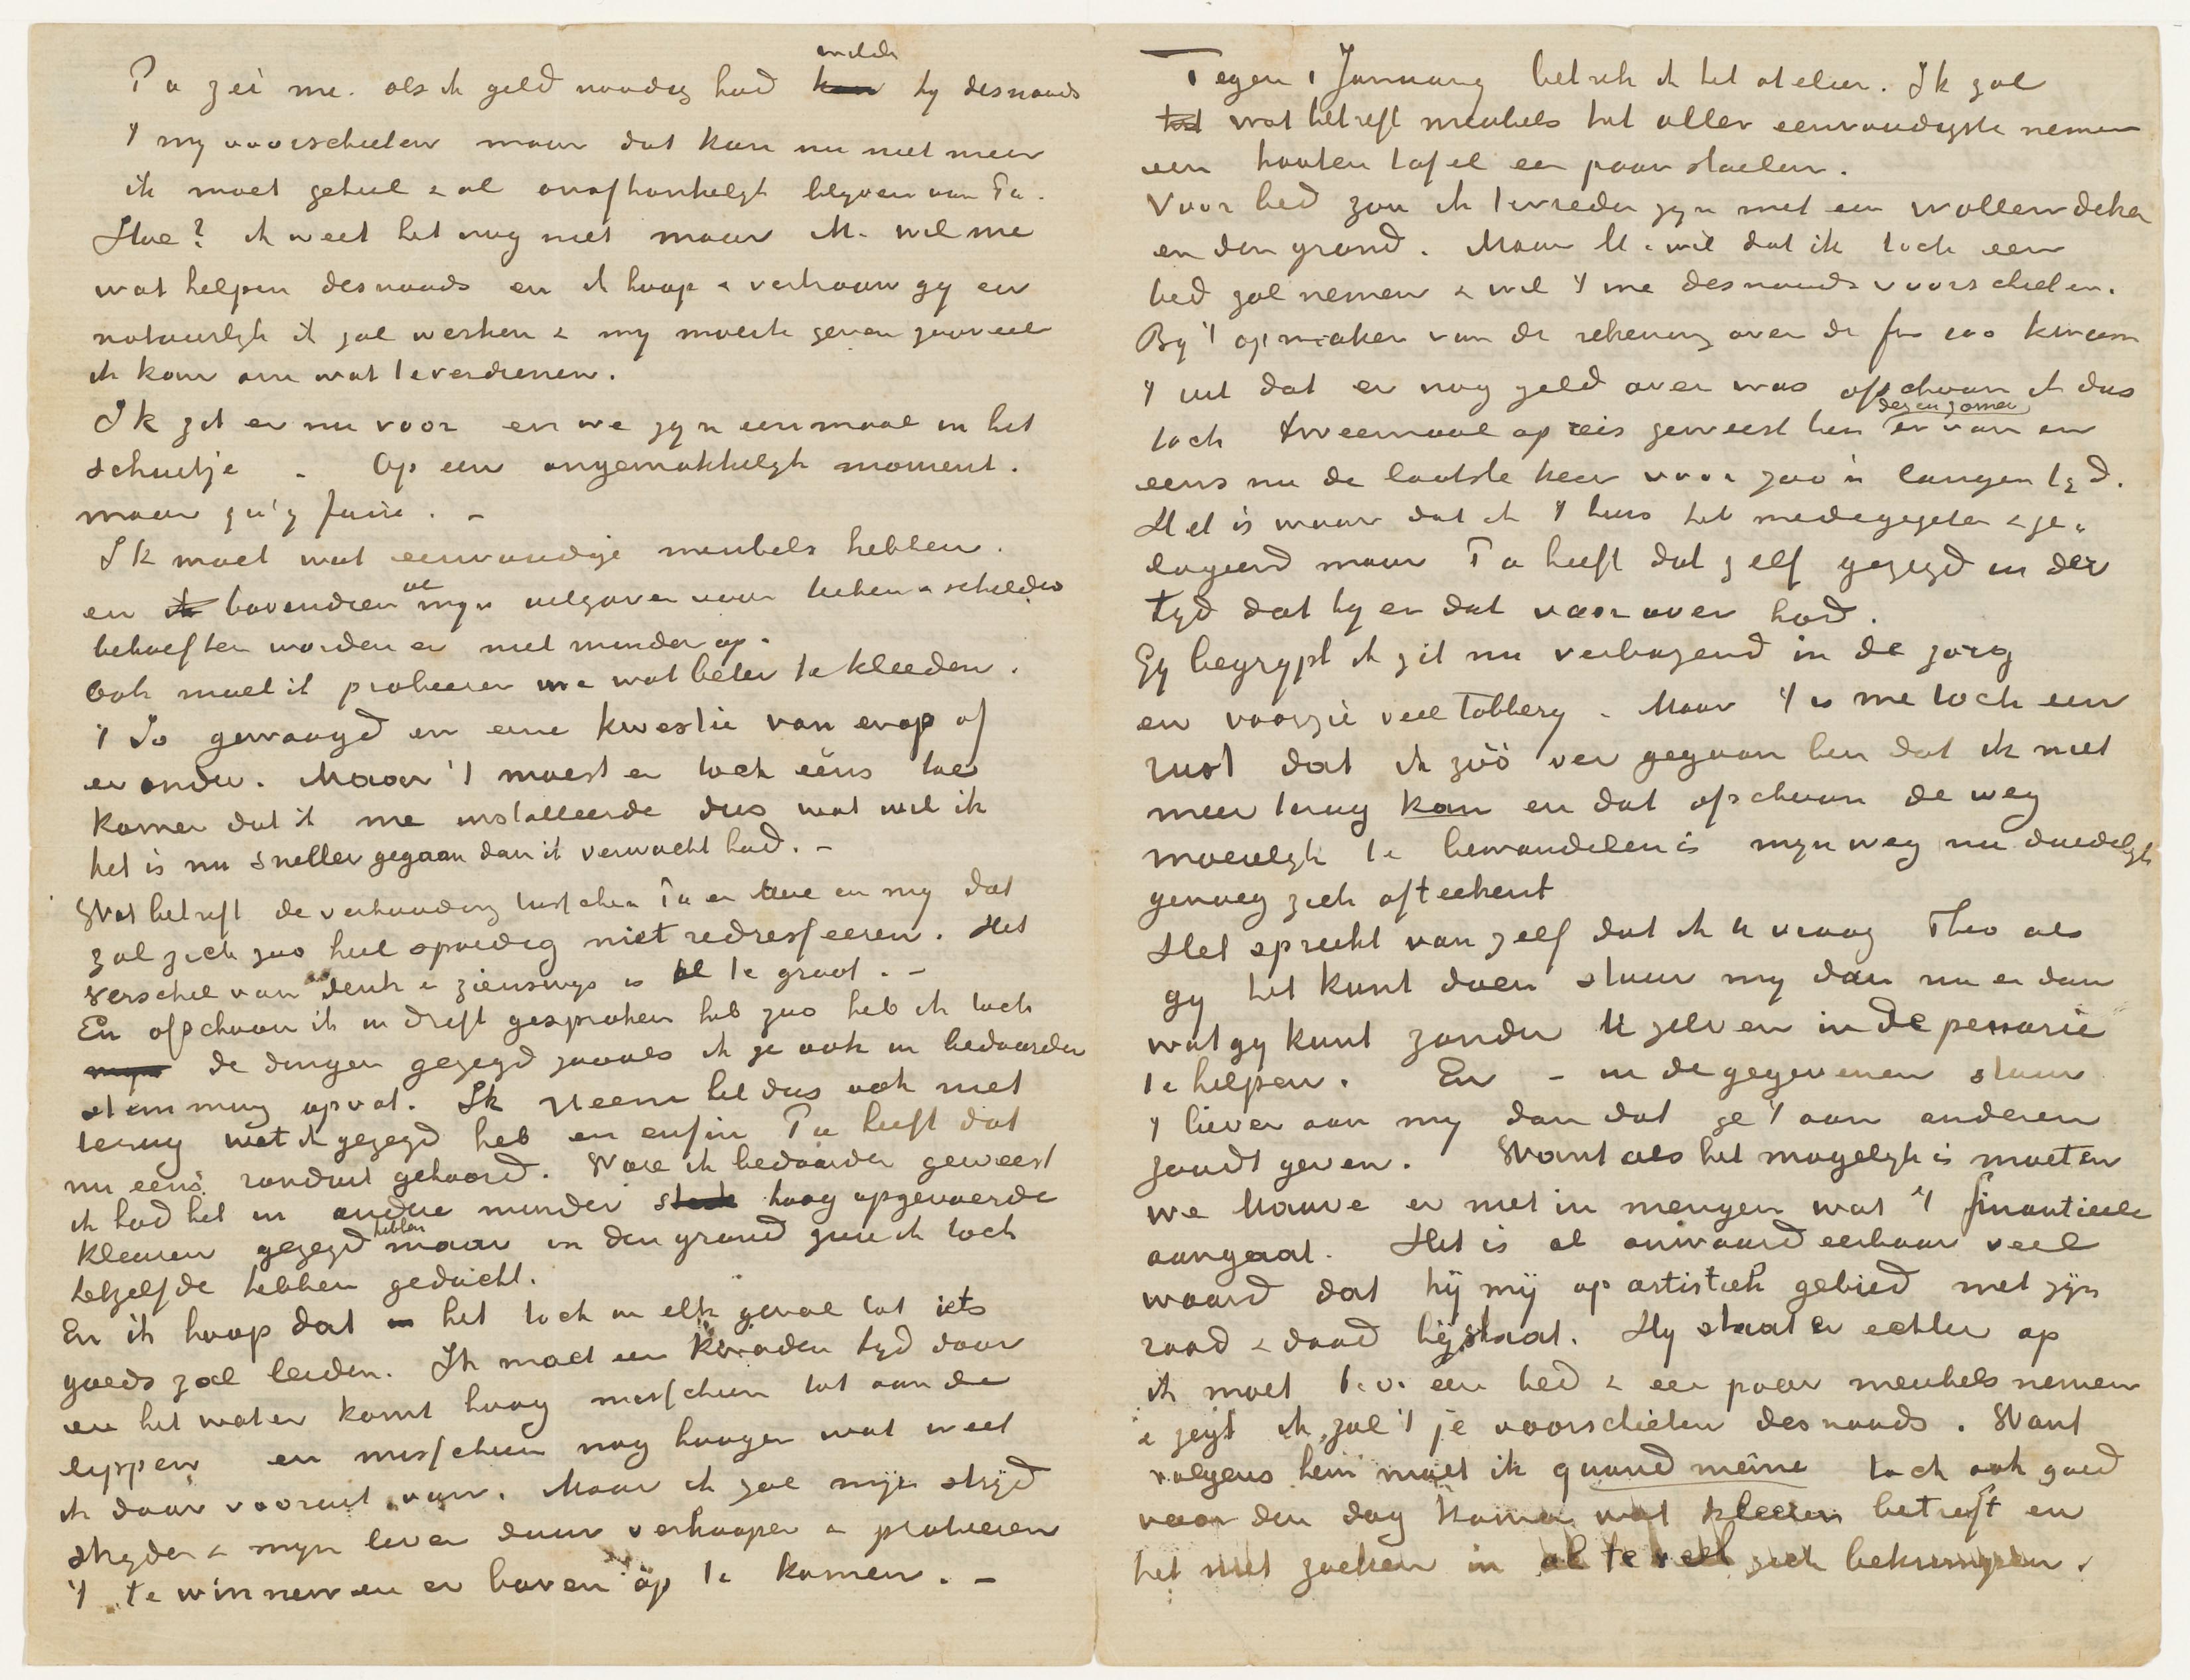 wilde
Pa zei me. als ik geld noodig had kan hy desnoods
't my voorschieten maar dat kan nu niet meer
ik moet geheel & al onafhankelyk blyven van Pa.
Hoe? ik weet het nog niet maar M. wil me
wat helpen desnoods en ik hoop & vertrouw gy en
natuurlyk ik zal werken & my moeite geven zooveel
ik kan om wat te verdienen.
Ik zit er nu voor en we zyn eenmaal in het
schuitje. Op een ongemakkelyk moment.
maar qu'y faire. –
Ik moet wat eenvoudige meubels hebben.
en ik bovendien al myn uitgaven voor teeken & schilder
behoeften worden er niet minder op.
Ook moet ik probeeren me wat beter te kleeden.
't Is gewaagd en eene kwestie van erop of
eronder. Maar 't moest er toch ëens toe
komen dat ik me installeerde dus wat wil ik
het is nu sneller gegaan dan ik verwacht had. –
Wat betreft de verhouding tusschen Pa en Moe en my dat
zal zich zoo heel spoedig niet redresseeren. Het
verschil van denk & zienswys is al te groot. –
En ofschoon ik in drift gesproken heb zoo heb ik toch
de dingen gezegd zooals ik ze ook in bedaarden
stemming opvat. Ik neem het dus ook niet
terug wat ik gezegd heb en enfin Pa heeft dat
nu eens ronduit gehoord. Ware ik bedaarder geweest
ik had het in andere minder sterk hoog opgevoerde
kleuren gezegd hebben maar in den grond zou ik toch
hetzelfde hebben gedacht.
En ik hoop dat het toch in elk geval tot iets
goeds zal leiden. Ik moet een kwaden tyd door
en het water komt hoog misschien tot aan de
lippen en misschien nog hooger wat weet
ik daar vooruit van. Maar ik zal mijn stryd
stryden & myn leven duur verkoopen & probeeren
't te winnen en er boven op te komen. –
Tegen 1 Januarij betrek ik het atelier. Ik zal
wat betreft meubels het aller eenvoudigste nemen
een houten tafel een paar stoelen.
Voor bed zou ik tevreden zyn met een wollen deken
en den grond. Maar M. wil dat ik toch een
bed zal nemen & wil 't me desnoods voorschieten.
By 't opmaken van de rekening over de fr 100 kwam
't uit dat er nog geld over was ofschoon ik dus
dezen zomer
toch tweemaal op reis geweest ben er van en
eens nu de laatste keer voor zoo'n langen tyd.
Het is waar dat ik 't huis heb medegegeten & ge-
logeerd maar Pa heeft dat zelf gezegd in der
tyd dat hy er dat voor over had.
Gy begrypt ik zit nu verbazend in de zorg
en voorzie veel tobbery. Maar 't is me toch een
rust dat ik zóó ver gegaan ben dat ik niet
meer terug kan en dat ofschoon de weg
moeielyk te bewandelen is myn weg nu duidelyk
genoeg zich afteekent
Het spreekt van zelf dat ik U vraag Theo als
gy het kunt doen stuur my dan nu en dan
wat gy kunt zonder U zelven in de penurie
te helpen. En – in de gegevenen stuur
't liever aan my dan dat ge 't aan anderen
zoudt geven. Want als het mogelyk is moeten
we Mauve er niet in mengen wat 't finantieele
aangaat. Het is al onwaardeerbaar veel
waard dat hij mij op artistiek gebied met zijn
raad & daad bijstaat. Hy staat er echter op
ik moet b.v. een bed & een paar meubels nemen
& zegt ik zal 't je voorschieten desnoods. Want
volgens hem moet ik quand même toch ook goed
voor den dag komen wat kleeren betreft en
het niet zoeken in al te veel zich bekrimpen.